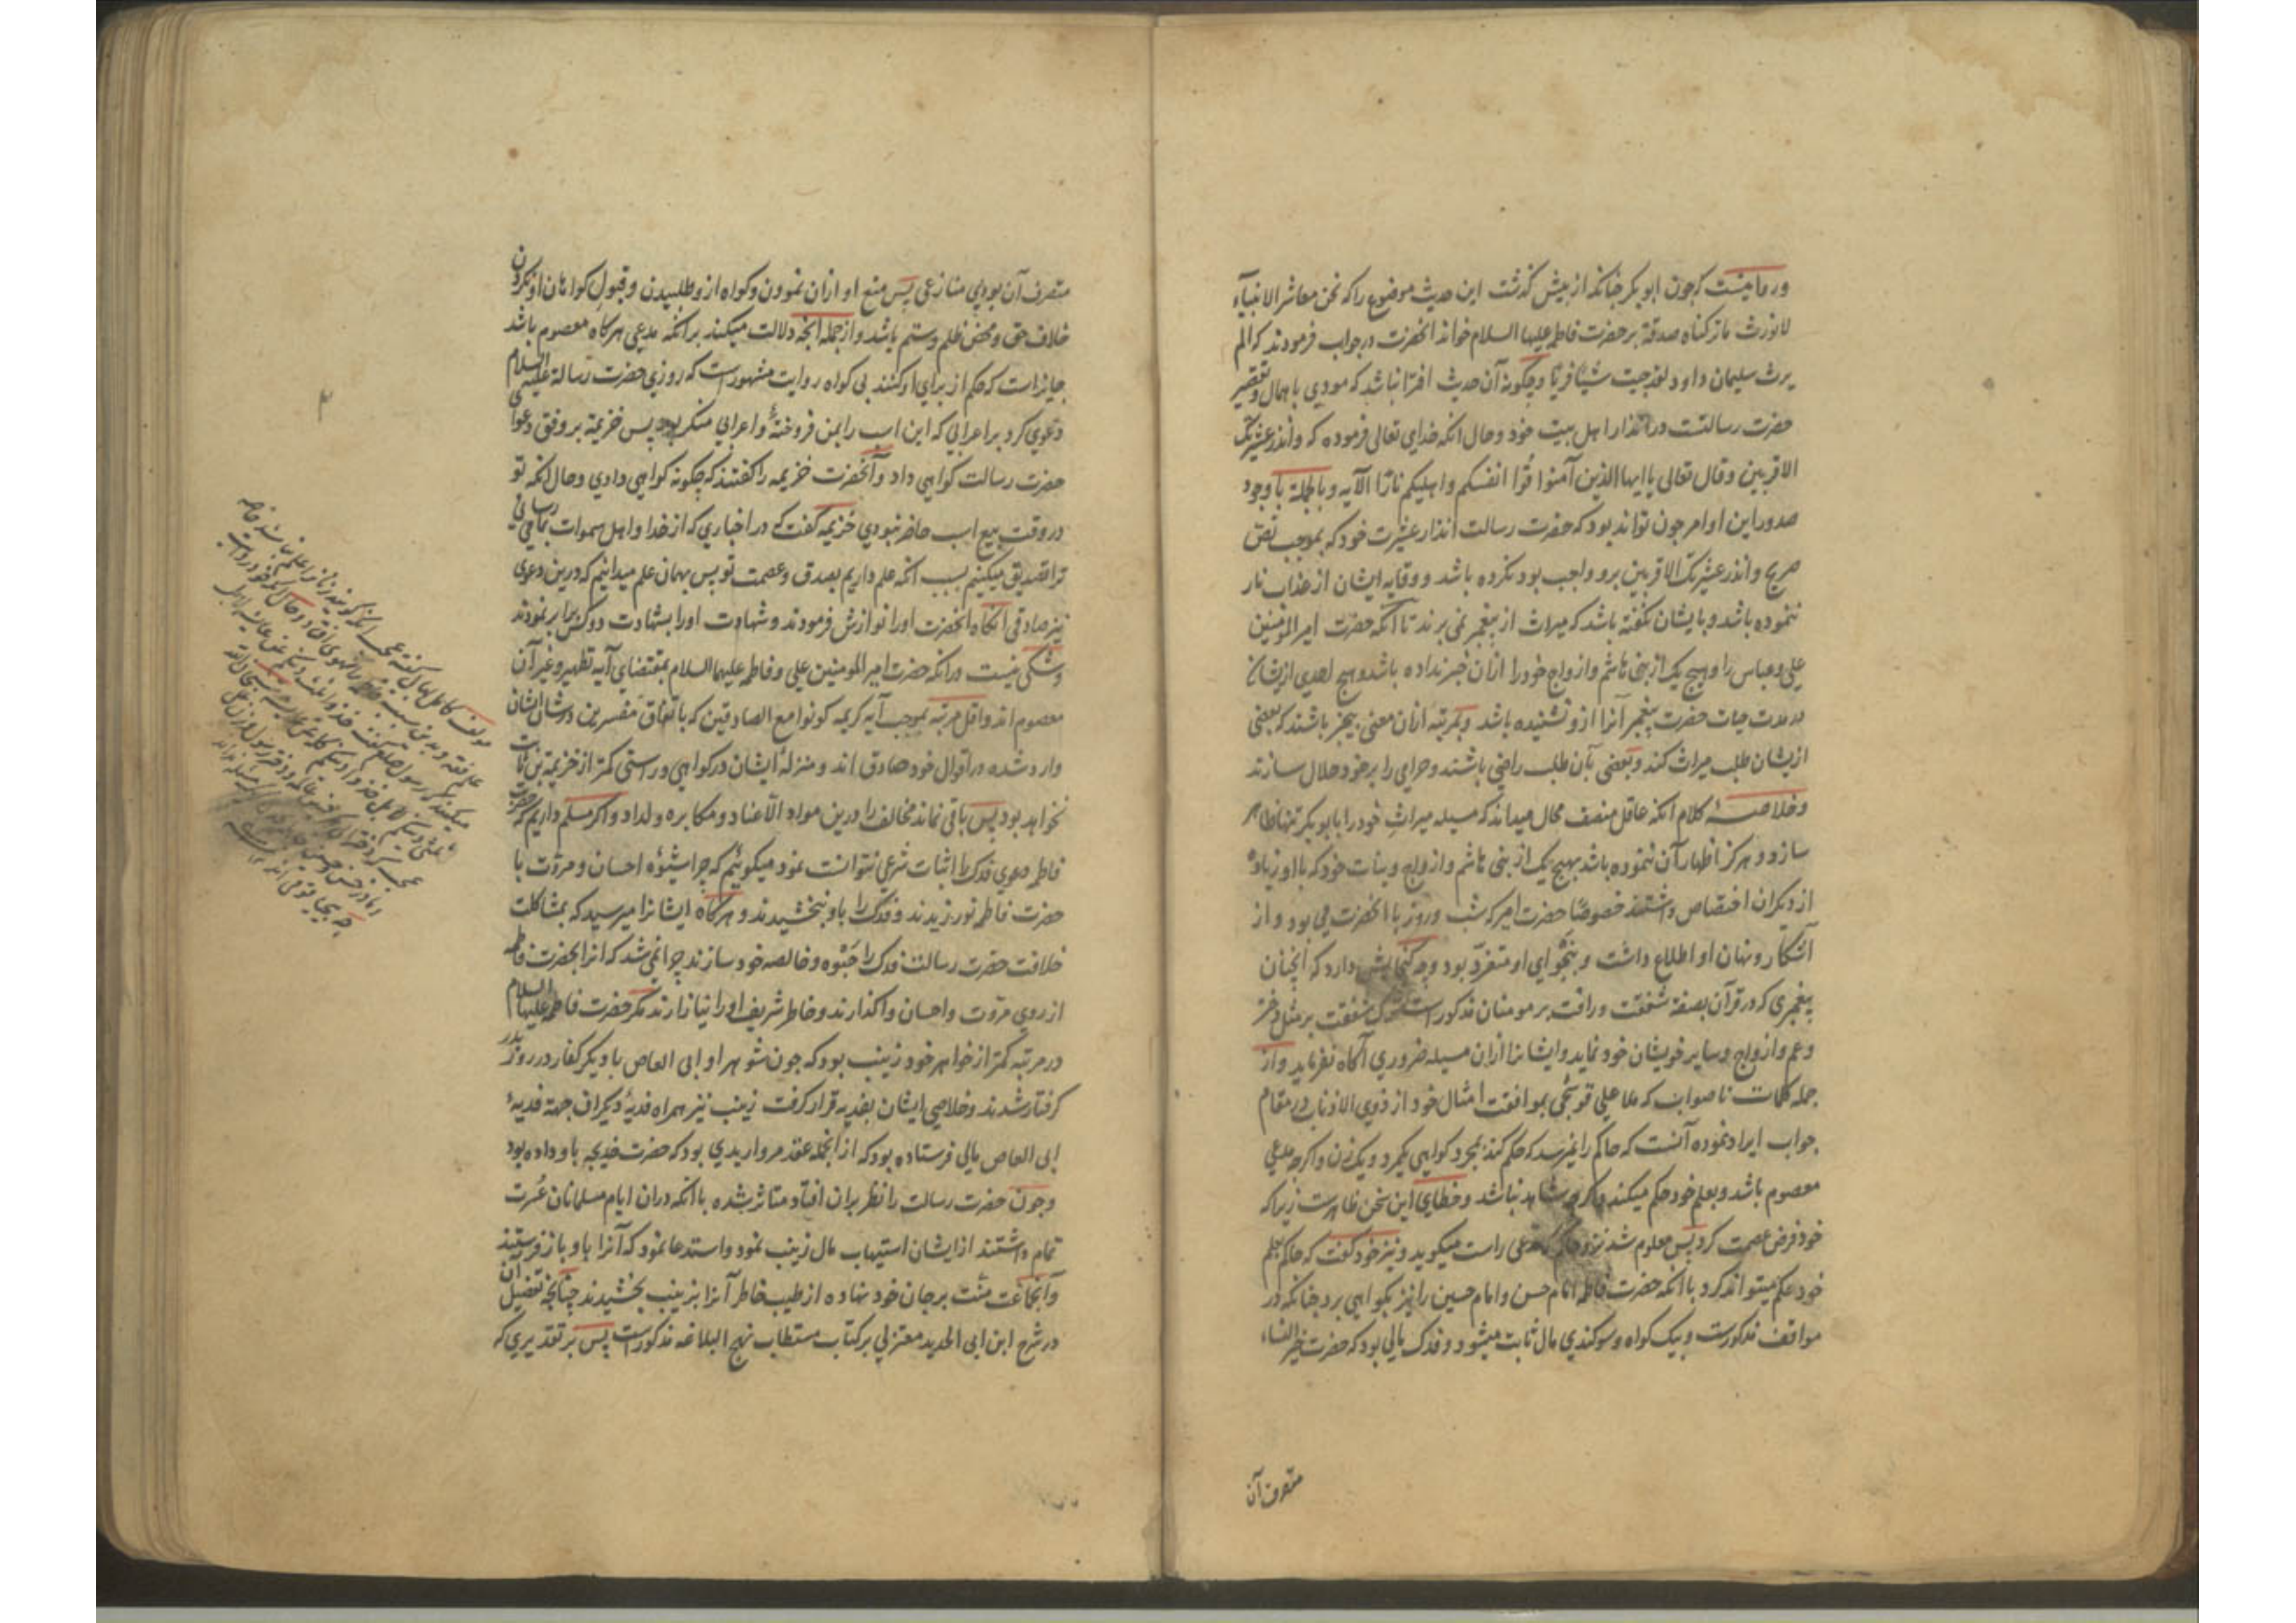 ور ما نیست که چون ابو بکر چنانکه از پیش گذشت این حدیث موضوع را که نحن معاشر الانبیآء
لانورث ما ترکناه صدقة بر حضرت فاطمه علیها السلام خواند انحضرت در جواب فرمودند که الم
یرث سلیمان داود لقد جیت شیئا فریّا و چکونه آن حدیث افترا نباشد که مودی باهمال و تقصیر
حضرت رسالتست در انذار اهل بیت خود و حال انکه خدای تعالی فرموده که وانذر عشیرتک
الاقربین وقال تعالی یا ایها الذین آمنوا قوا انفسکم واهلیکم نارًا الآیه و بالجملة با وجود
صدور این اوامر چون تواند بود که حضرت رسالت انذار عشیرت خود که بموجب نص
صریح وانذر عشیرتک الاقربین برو واجب بود نکرده باشد و وقایه ایشان از عذاب نار
ننموده باشد و بایشان نکفته باشد که میراث از پیغمبر نمی برند تا انکه حضرت امیر المؤمنین
علی و عباس را و هیچ یک از بنی هاشم و ازواج خود را ازان خبر نداده باشد و هیچ احدی ازیشان
در مدت حیات حضرت پیغمبر آنرا ازو نشنیده باشد و بمرتبه ازان معنی بیخبر باشند که بعضی
ازیشان طلب میراث کند و بعضی بآن طلب راضی باشند و حرامی را بر خود حلال سازند
و خلاصهٔ کلام انکه عاقل منصف محال میداند که مسیله میراث خود را بابو بکر تنها ظاهر
سازد و هرکز اظهار آن ننموده باشد بهیچ یک از بنی هاشم و ازواج و بنات خود که با او زیاده
از دیکران اختصاص داشتند خصوصًا حضرت امیر که شب و روز با انحضرت می بود و از
آشکار و نهان او اطلاع داشت و بنجوای او متفرّد بود و چه کنجایش دارد که آنچنان
پیغمبری که در قرآن بصفة شفقت و رافت بر مومنان مذکورست ترک شفقت بر مثل دختر
و عم و ازواج و سایر خویشان خود نماید و ایشانرا ازان مسیله ضروری آکاه نفرماید و از
جمله کلمات ناصواب که ملا علی قوشجی بموافقت امثال خود از ذوی الاذناب در مقام
جواب ایراد نموده آنست که حاکم را نمیرسد که حکم کند بمجرد کواهی یکمرد و یک زن و اکرچه مدعی
معصوم باشد و بعلم خود حکم میکند و اکرچه شاهد نباشد و خطای این سخن ظاهرست زیرا که
خود فرض عصمت کرد پس معلوم شد نزد حاکم که مدعی راست میکوید و نیز خود کفت که حاکم بعلم
خود حکم میتواند کرد با انکه حضرت فاطمه امام حسن و امام حسین را نیز بکواهی برد چنانکه در
مواقف مذکورست و بیک کواه و سوکندی مال ثابت میشود و فدک مالی بود که حضرت خیر النساء
متصرف آن
متصرف آن بود بی منازعی پس منع او ازان نمودن و کواه ازو طلبیدن و قبول کواهان او نکردن
خلاف حق و محض ظلم و ستم باشد و از جمله انچه دلالت میکند بر انکه مدعی هرکاه معصوم باشد
جایز است که حکم از برای او کنند بی کواه روایت مشهورست که روزی حضرت رسالة علیه السلام
دعوی کرد بر اعرابی که این اسب را بمن فروختهٔ و اعرابی منکر بود پس خزیمة بر وفق دعوای
حضرت رسالت کواهی داد و آنحضرت خزیمه را کفتند که چکونه کواهی دادی و حال انکه تو
در وقت بیع اسب حاضر نبودی خزیمه کفت که در اخباری که از خدا و اهل سموات بما می رسانی
ترا تصدیق میکنیم بسبب انکه علم داریم بصدق و عصمت تو پس بهمان علم میدانیم که درین دعوی
نیز صادقی انکاه انحضرت اورا نوازش فرمودند و شهادت اورا بشهادت دو کس برابر نمودند
و شکی نیست در انکه حضرت امیر المومنین علی و فاطمه علیهما السلام بمقتضای آیه تطهیر و غیر آن
معصوم اند و اقل مرتبه بموجب آیه کریمه کونوا مع الصادقین که باتفاق مفسرین در شان ایشان
وارد شده در اقوال خود صادق اند و منزلهٔ ایشان در کواهی و راستی کمتر از خزیمة بن ثابت
نخواهد بود پس باقی نماند مخالف را درین مواد الا عناد و مکابره و لداد و اکر مسلم داریم که حضرت
فاطمه دعوی فدک را اثبات شرعی نتوانست نمود میکوئیم که چرا شیوهٔ احسان و مروّت با
حضرت فاطمه نورزیدند و فدک را باو نبخشیدند و هرکاه ایشانرا میرسید که بمشاکلت
خلافت حضرت رسالت فدک را حَبْوه و خالصه خود سازند چرا نمی شد که انرا بحضرت فاطمه
از روی مروّت و احسان واکذارند و خاطر شریف اورا نیازارند مکر حضرت فاطمه علیها السلام
در مرتبه کمتر از خواهر خود زینب بود که چون شوهر او ابی العاص با دیکر کفار در روز بدر
کرفتار شدند و خلاصی ایشان بفدیه قرار کرفت زینب نیز همراه فدیهٔ دیکران جهة فدیهٔ
ابی العاص مالی فرستاده بود که از انجمله عقد مرواریدی بود که حضرت خدیجه باو داده بود
و چون حضرت رسالت را نظر بران افتاد متاثر شده با انکه دران ایام مسلمانان عُسرت
تمام داشتند از ایشان استیهاب مال زینب نمود و استدعا نمود که آنرا باو باز فرستند
و آنجماعت منّت بر جان خود نهاده از طیب خاطر آنرا بزینب بخشیدند چنانچه تفصیل آن
در شرح ابن ابی الحدید معتزلی بر کتاب مستطاب نهج البلاغه مذکورست پس بر تقدیری که